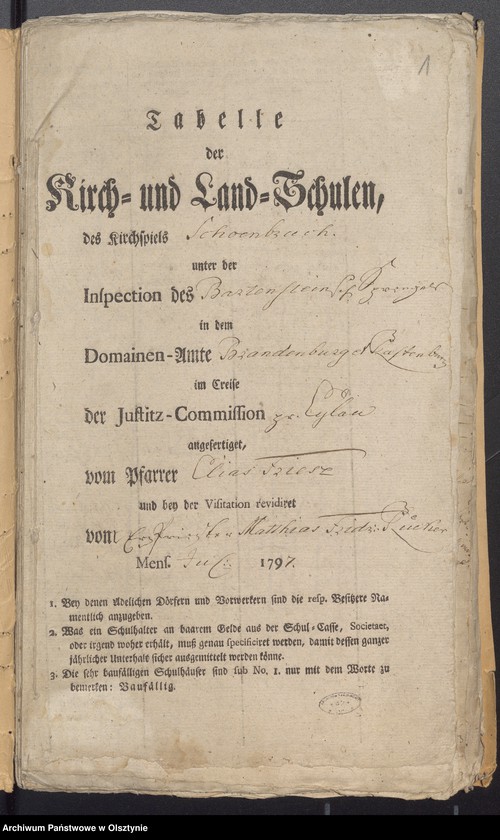 1
Tabelle
der
Kirch- und Land-Schulen,
des Kirchspiels Schoenbruch.
unter der
Inspection des Bartenstein
in dem
Domainen-Amte Brandenburg et Rastenburg
im Creise
der Justitz-Commission pr. Eylau
angefertiget,
vom Pfarrer Elias Friese
und bey der Visitation revidiret
vom ErzPriester Matthias Fridr.
Mens. Jul: 1797.
1. Bey denen Adelichen Dörfern und Vorwerkern sind die resp. Besitzere Na-
mentlich anzugeben.
2. Was ein Schulhalter an baarem Gelde aus der Schul-Casse, Societaet,
oder irgend woher erhält, muß genau specificiret werden, damit dessen ganzer
jährlicher Unterhalt sicher ausgemittelt werden könne.
3. Die sehr baufälligen Schulhäuser sind sub No. 1. nur mit dem Worte zu
bemerken: Baufällig.
Archiwum Państwowe w Olsztynie